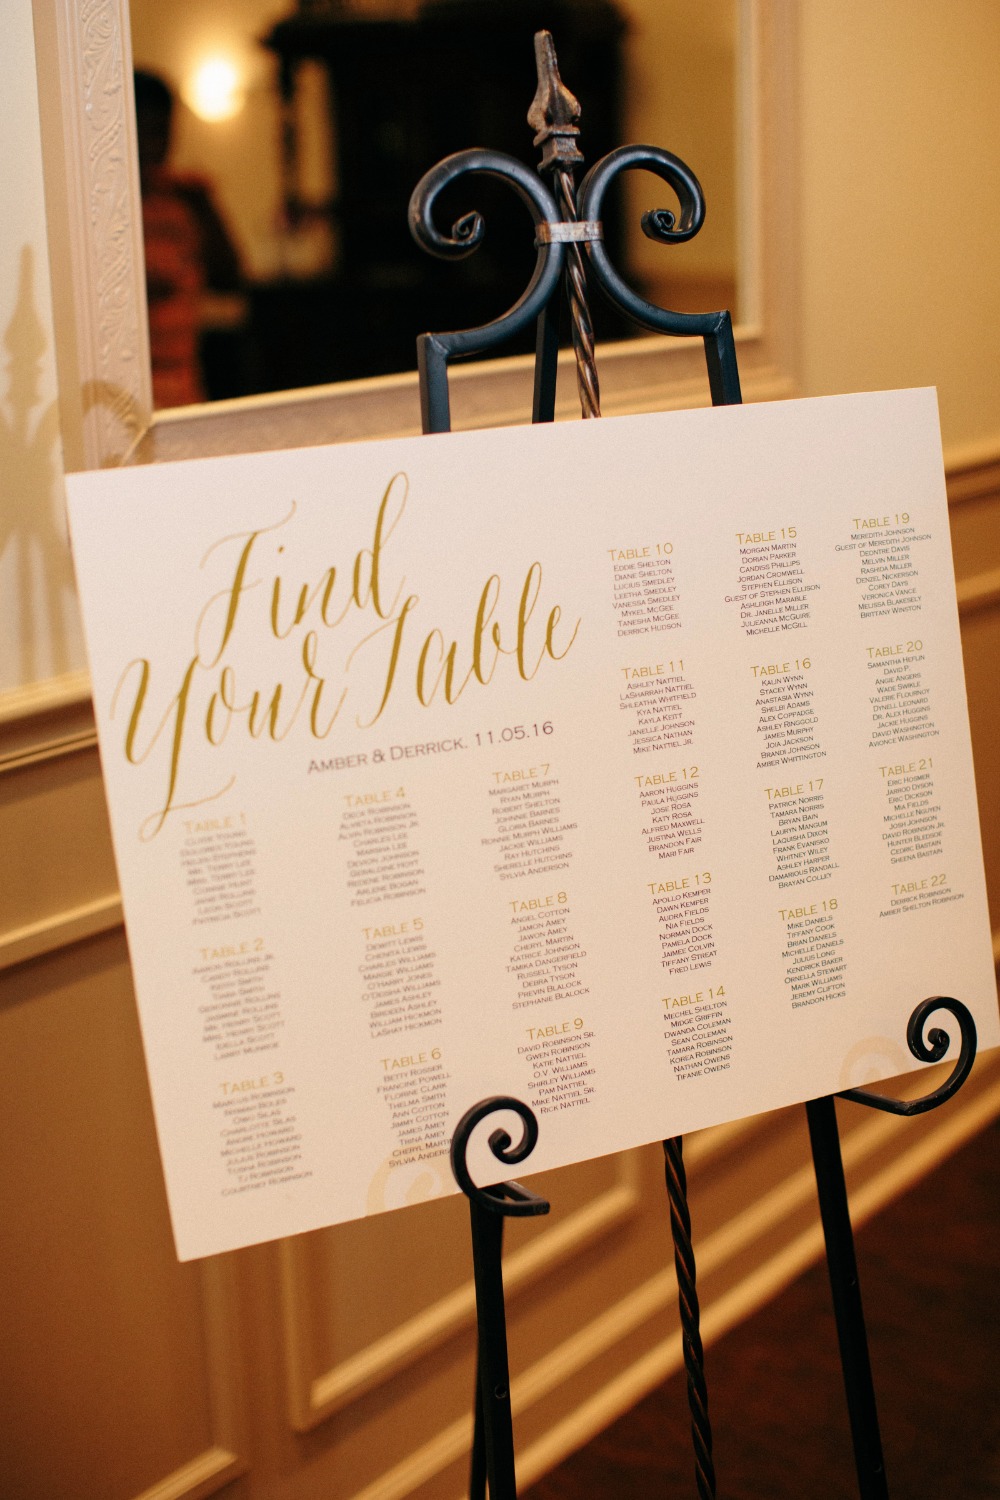 Find
Your Table
AMBER & DERRICK. 11.05.16
TABLE 1
CLYDE YOUNG
DOLORES YOUNG
HELEN STEPHENS
MR. TERRY LEE
MRS. TERRY LEE
CONNIE HUNT
JANE ROLLINS
LEON SCOTT
PATRICIA SCOTT
TABLE 2
AARON ROLLINS JR.
CANDY ROLLINS
KEITH SMITH
TARA SMITH
JASMINE ROLLINS
MR. HENRY SCOTT
MRS. HENRY SCOTT
IDELLA SCOTT
LARRY MUNROE
TABLE 3
MARCUS ROBINSON
NORAH BOLES
OMU SILAS
CHARLOTTE SILAS
ANDRE HOWARD
MICHELLE HOWARD
JULIUS ROBINSON
TOSHA ROBINSON
TJ ROBINSON
COURTNEY ROBINSON
TABLE 4
DECE ROBINSON
ALVIETA ROBINSON
ALVIN ROBINSON JR.
CHARLES LEE
MARSHA LEE
DEVION JOHNSON
GERALDINE HOYT
REGENE ROBINSON
ARLENE BOGAN
FELICIA ROBINSON
TABLE 5
DEWITT LEWIS
CHENITA LEWIS
CHARLES WILLIAMS
MARGIE WILLIAMS
O'HARRY JONES
O'DESHA WILLIAMS
JAMES ASHLEY
BREIEEN ASHLEY
WILLIAM HICKMON
LASHAY HICKMON
TABLE 6
BETTY ROSSER
FRANCINE POWELL
FLORINE CLARK
THELMA SMITH
ANN COTTON
JIMMY COTTON
JAMES AMEY
TRINA AMEY
CHERYL MARTI
SYLVIA ANDERS
TABLE 7
MARGARET MURPH
RYAN MURPH
ROBERT SHELTON
JOHNNIE BARNES
GLORIA BARNES
RONNIE MURPH WILLIAMS
JACKIE WILLIAMS
RAY HUTCHINS
SHERELLE HUTCHINS
SYLVIA ANDERSON
TABLE 8
ANGEL COTTON
JAMON AMEY
JAWON AMEY
CHERYL MARTIN
KATRICE JOHNSON
TAMIKA DANGERFIELD
RUSSELL TYSON
DEBRA TYSON
PREVIN BLALOCK
STEPHANIE BLALOCK
TABLE 9
DAVID ROBINSON SR.
GWEN ROBINSON
KATIE NATTIEL
O.V. WILLIAMS
SHIRLEY WILLIAMS
PAM NATTIEL
MIKE NATTIEL SR.
RICK NATTIEL
TABLE 10
EDDIE SHELTON
DIANE SHELTON
LUCIUS SMEDLEY
LEETHA SMEDLEY
VANESSA SMEDLEY
MYKEL MCGEE
TANESHA MCGEE
DERRICK HUDSON
TABLE 11
ASHLEY NATTIEL
LASHARRAH NATTIEL
SHLEATHA WHITFIELD
KYA NATTIEL
KAYLA KEITT
JANELLE JOHNSON
JESSICA NATHAN
MIKE NATTIEL JR.
TABLE 12
AARON HUGGINS
PAULA HUGGINS
JOSE ROSA
KATY ROSA
ALFRED MAXWELL
JUSTINA WELLS
BRANDON FAIR
MARI FAIR
TABLE 13
APOLLO KEMPER
DAWN KEMPER
AUDRA FIELDS
NIA FIELDS
NORMAN DOCK
PAMELA DOCK
JAIMEE COLVIN
TIFFANY STREAT
FRED LEWIS
TABLE 14
MECHEL SHELTON
MIDGE GRIFFIN
DWANDA COLEMAN
SEAN COLEMAN
TAMARA ROBINSON
KOREA ROBINSON
NATHAN OWENS
TIFANIE OWENS
TABLE 15
MORGAN MARTIN
DORIAN PARKER
CANDISS PHILLIPS
JORDAN CROMWELL
STEPHEN ELLISON
GUEST OF STEPHEN ELLISON
ASHLEIGH MARABLE
DR. JANELLE MILLER
JULIEANNA MCGUIRE
MICHELLE MCGILL
TABLE 16
KALIN WYNN
STACEY WYNN
ANASTASIA WYNN
SHELBI ADAMS
ALEX COPPADGE
ASHLEY RINGGOLD
JAMES MURPHY
JOIA JACKSON
BRANDI JOHNSON
AMBER WHITTINGTON
TABLE 17
PATRICK NORRIS
TAMARA NORRIS
BRYAN BAIN
LAURYN MANGUM
LAQUISHA DIXON
FRANK EVANISKO
WHITNEY WILEY
ASHLEY HARPER
DAMARIOUS RANDALL
BRAYAN COLLEY
TABLE 18
MIKE DANIELS
TIFFANY COOK
BRIAN DANIELS
MICHELLE DANIELS
JULIUS LONG
KENDRICK BAKER
ORNELLA STEWART
MARK WILLIAMS
JEREMY CLIFTON
BRANDON HICKS
TABLE 19
MEREDITH JOHNSON
GUEST OF MEREDITH JOHNSON
DEONTRE DAVIS
MELVIN MILLER
RASHIDA MILLER
DENZEL NICKERSON
COREY DAYS
VERONICA VANCE
MELISSA BLAKESELY
BRITTANY WINSTON
TABLE 20
SAMANTHA HEFLIN
DAVID P.
ANGIE ANGERS
WADE SWIKLE
VALERIE FLOURNOY
DYNELL LEONARD
DR. ALEX HUGGINS
JACKIE HUGGINS
DAVID WASHINGTON
AVIONCE WASHINGTON
TABLE 21
ERIC HOSMER
JARROD DYSON
ERIC DICKSON
MIA FIELDS
MICHELLE NGUYEN
JOSH JOHNSON
DAVID ROBINSON JR.
HUNTER BLEDSOE
CEDRIC BASTAIN
SHEENA BASTAIN
TABLE 22
DERRICK ROBINSON
AMBER SHELTON ROBINSON